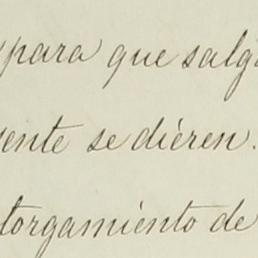 para que salga
ente se diéren.
torgamiento de